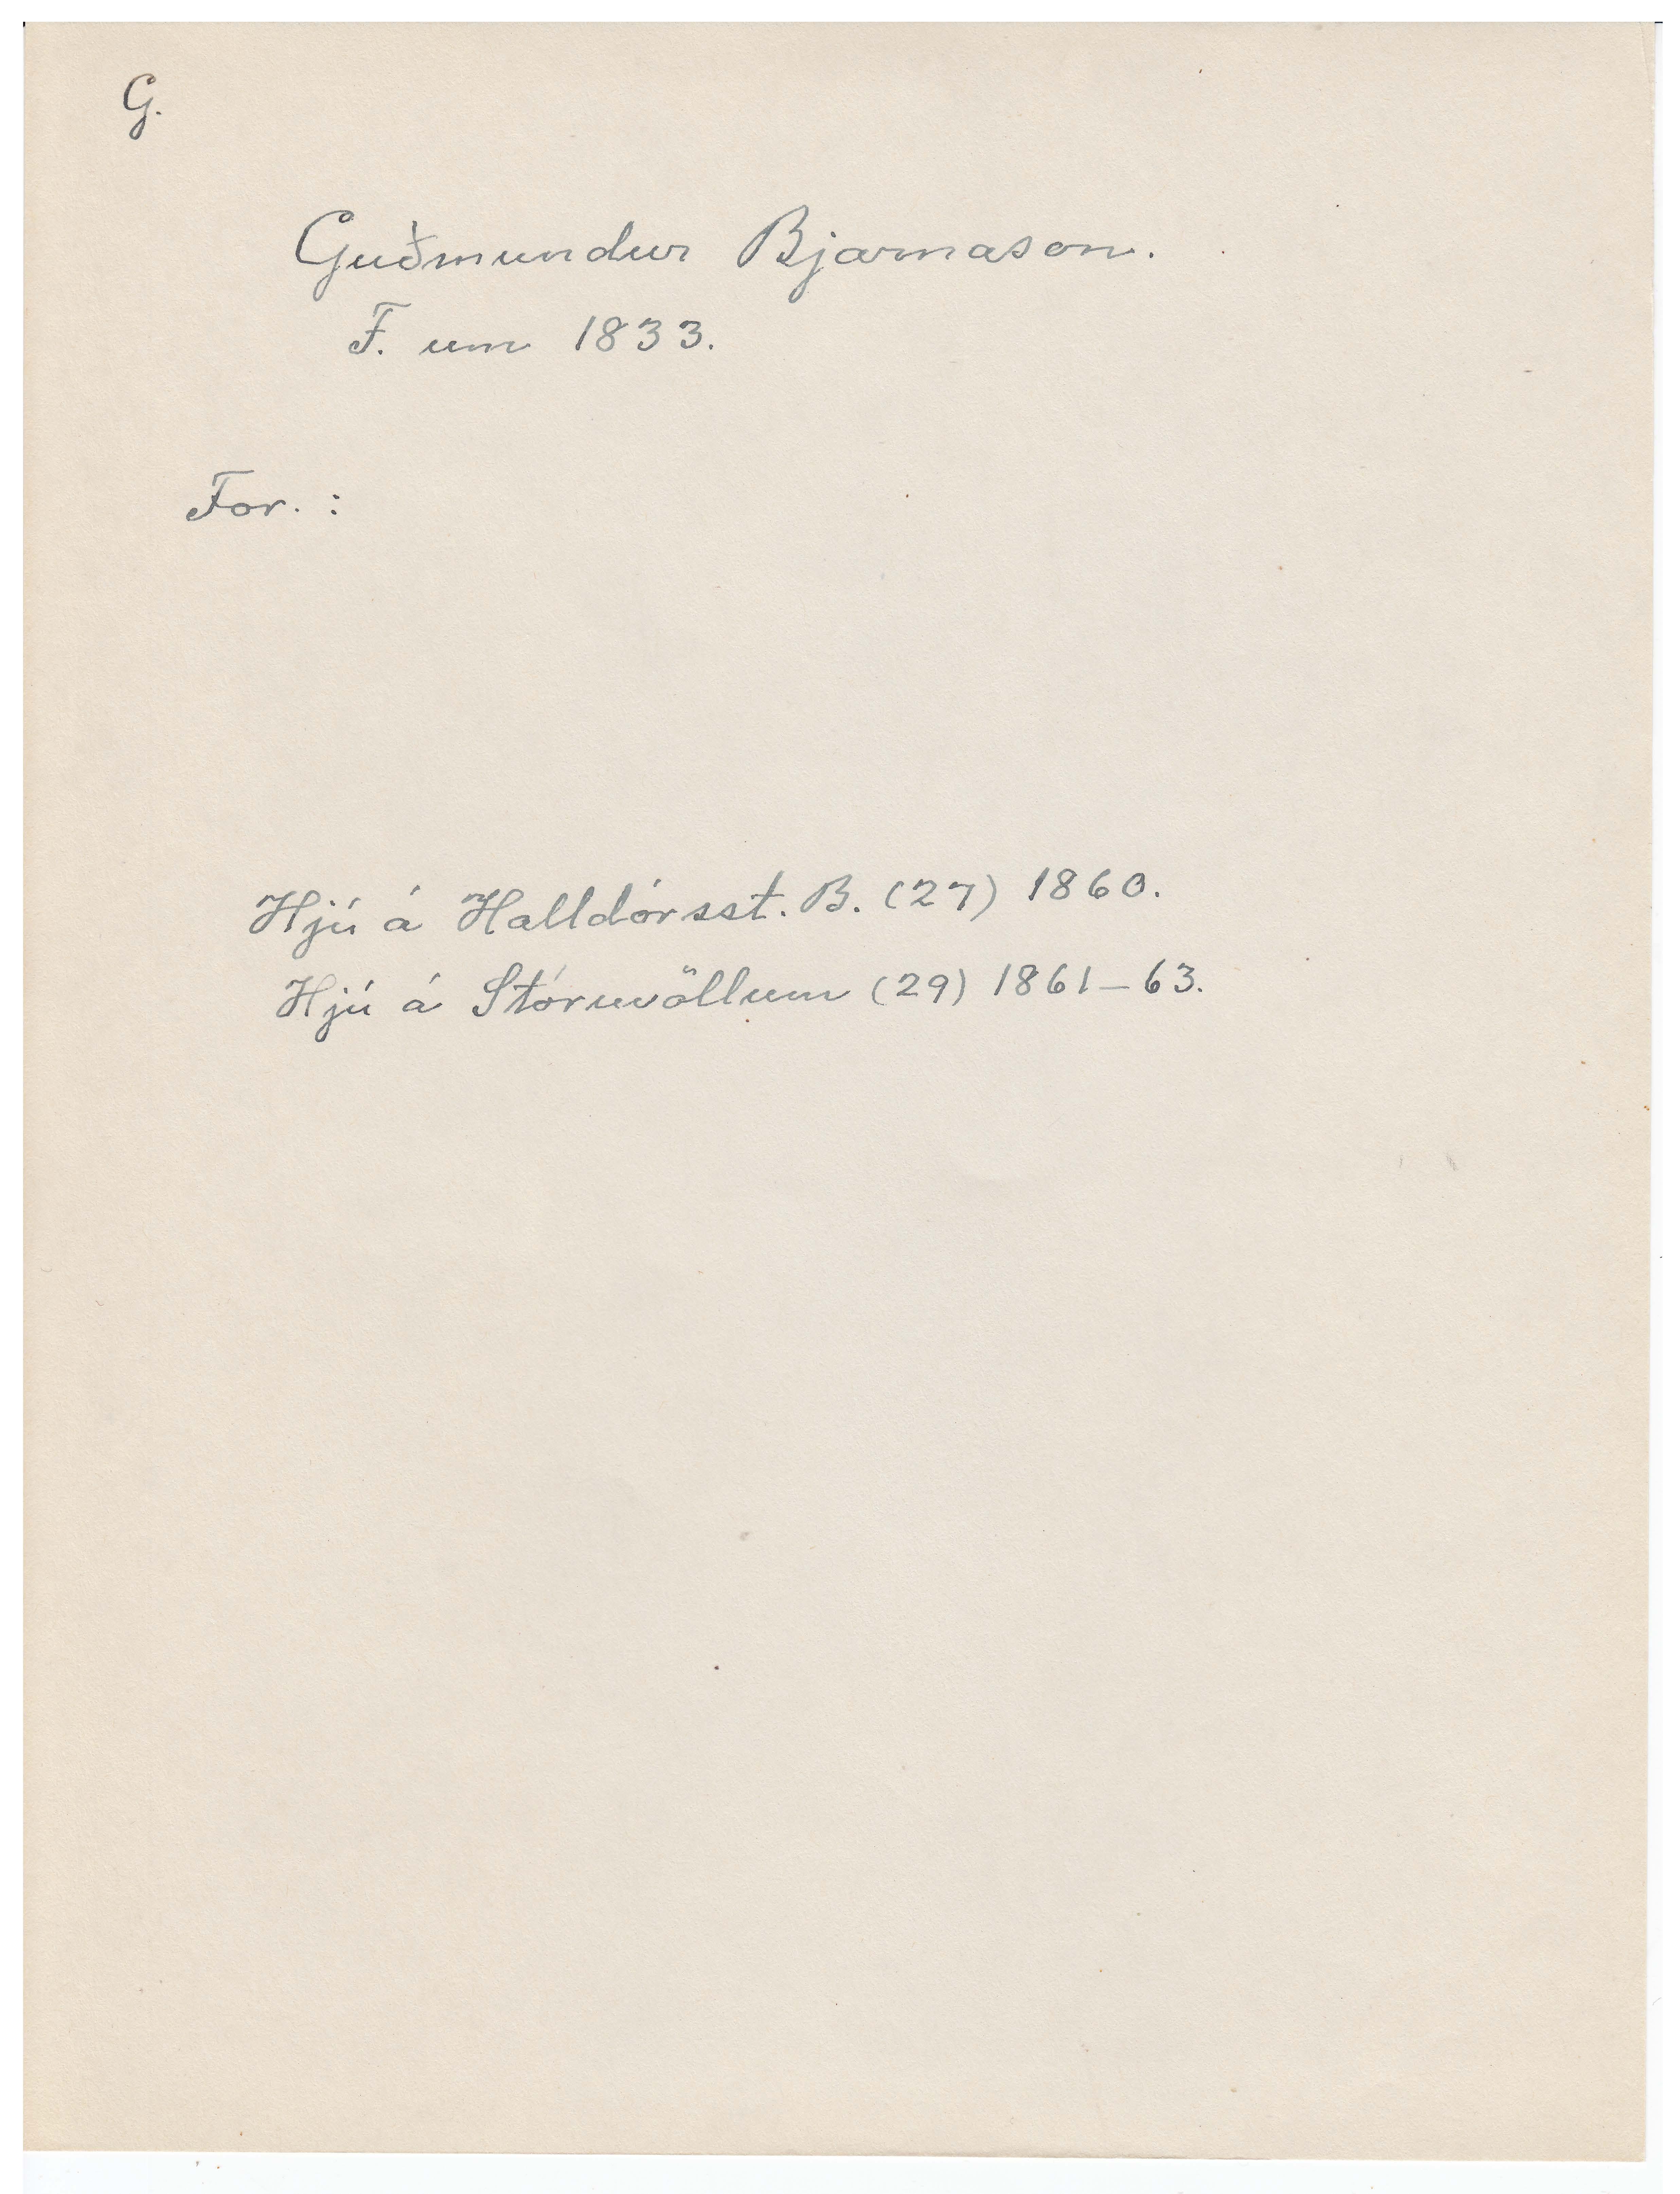 G.
Guðmundur Bjarnason.
F. um 1833.
For. :
Hjú á Halldórsst. B. (27) 1860.
Hjú á Stóruvöllum (29) 1861-63.